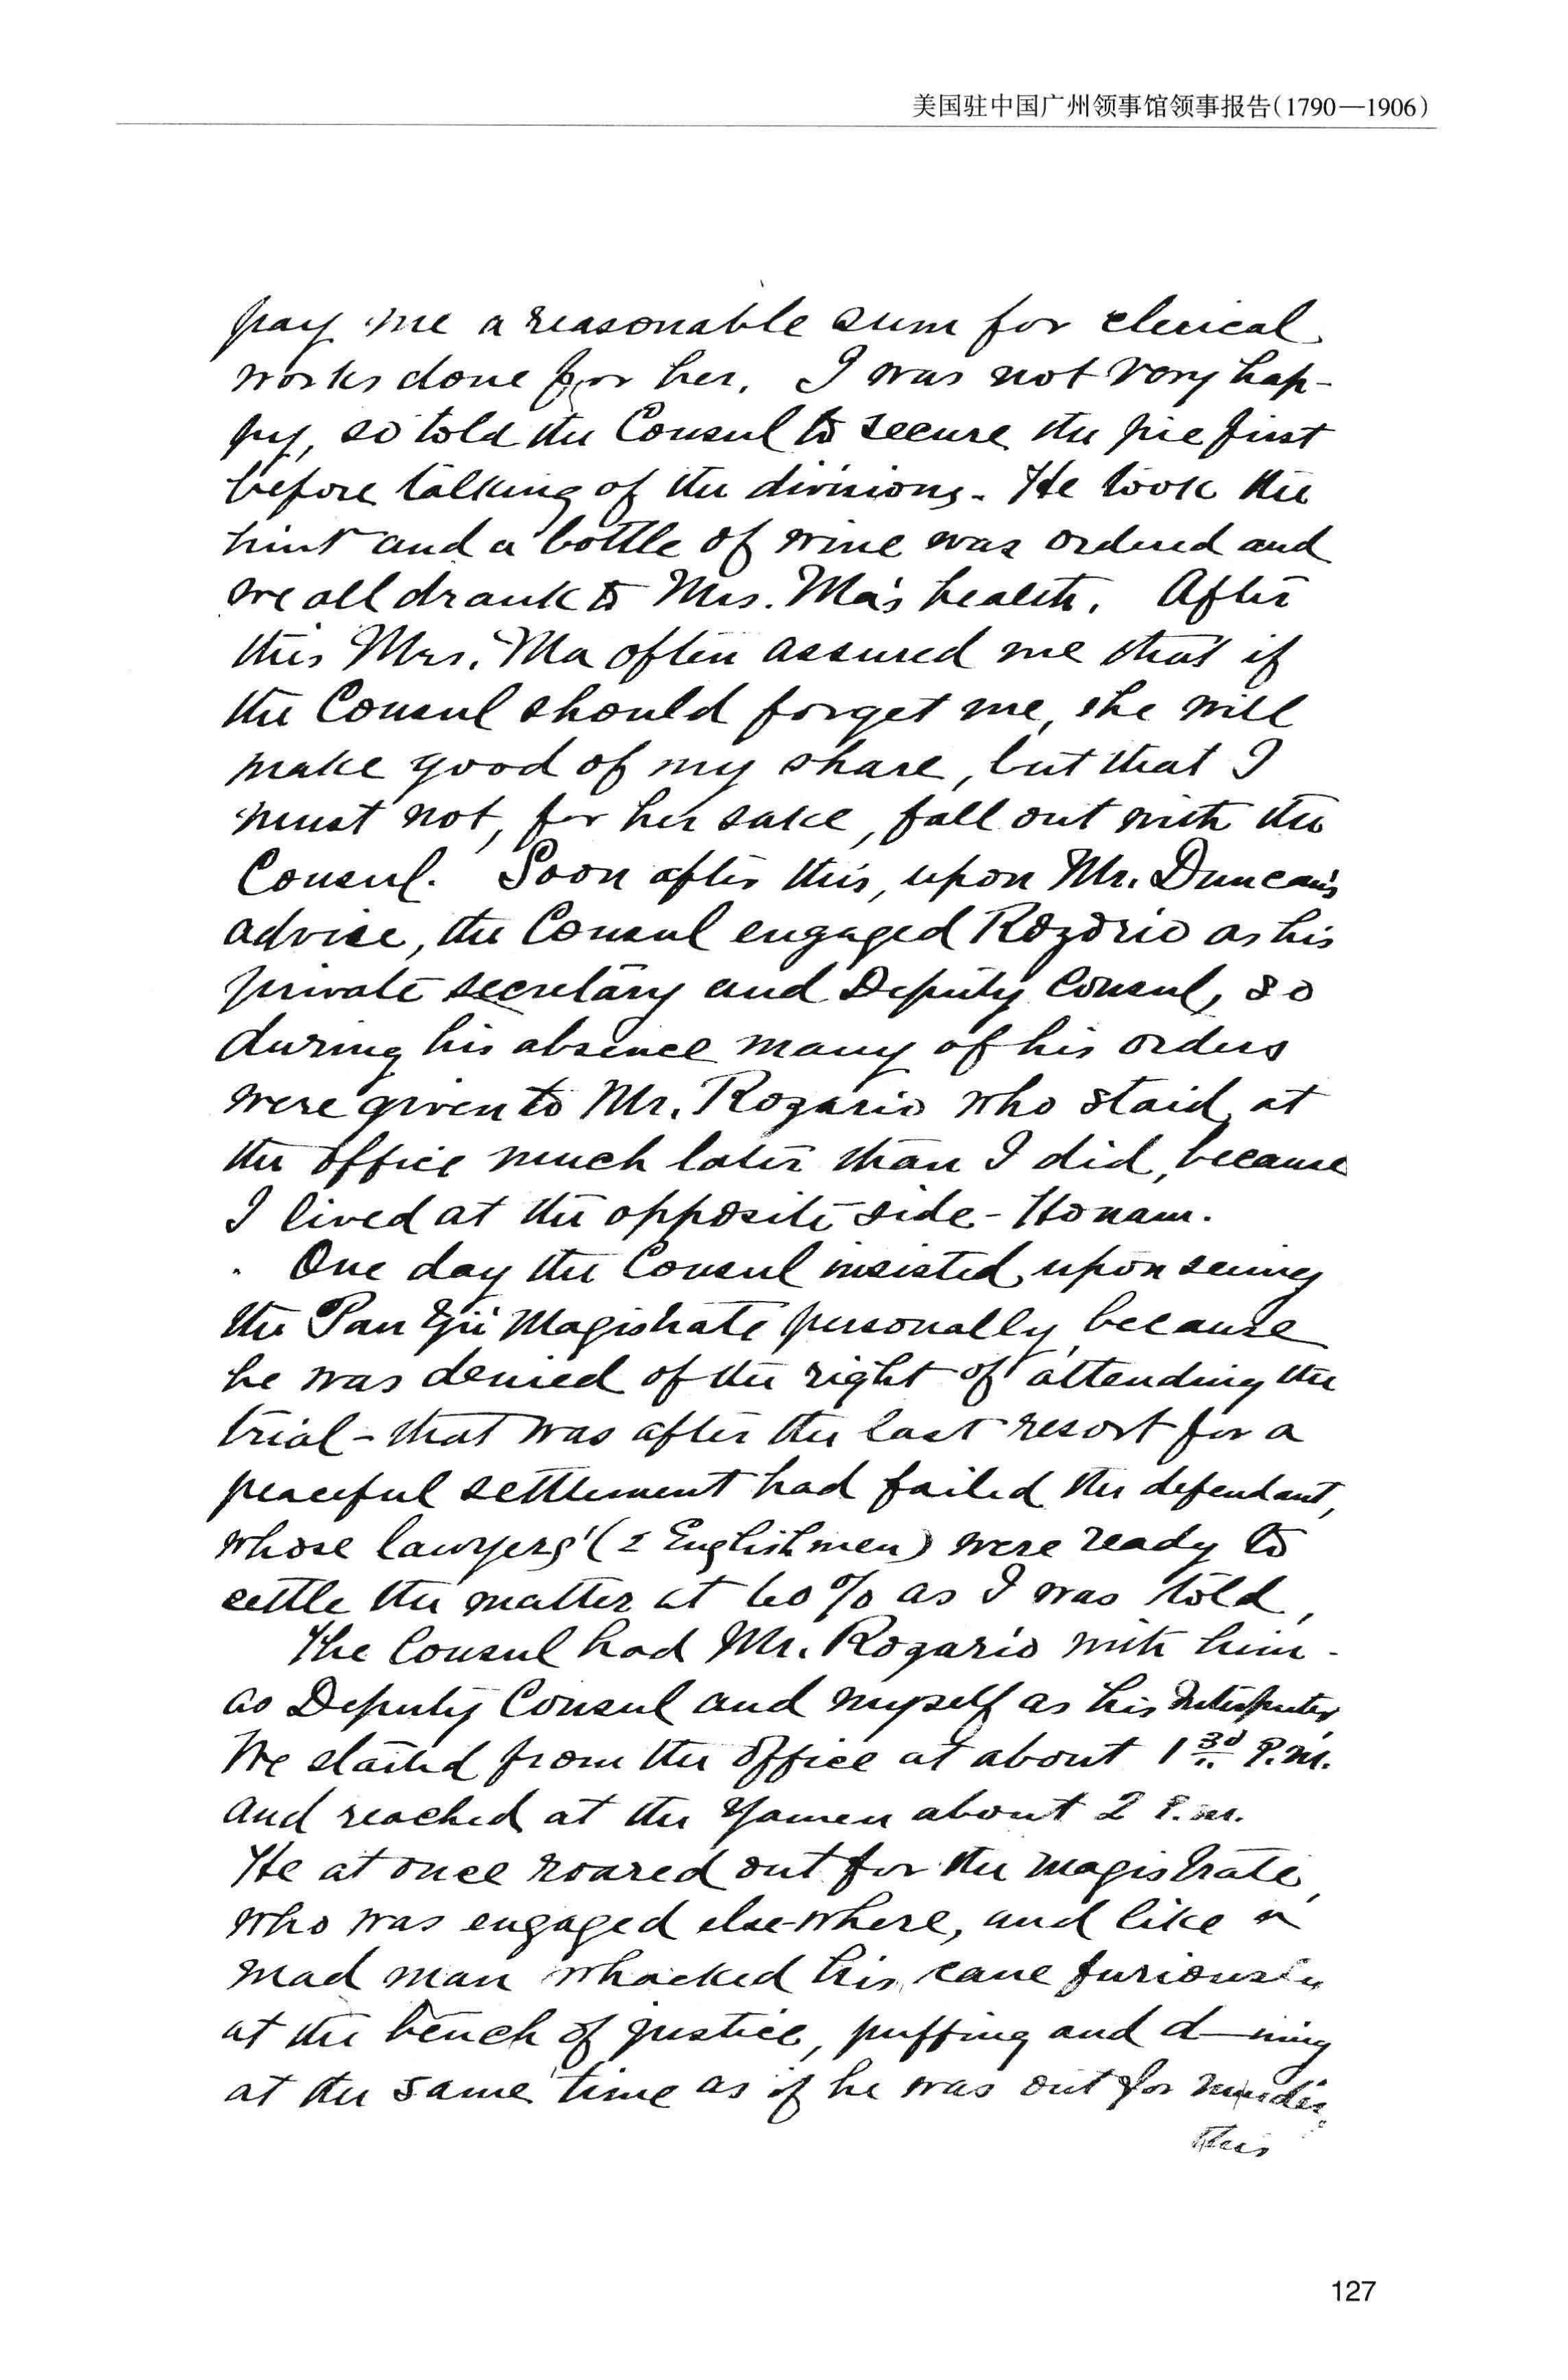 美国驻中国广州领事馆领事报告(1790—1906)
pay me a reasonable sum for clerical
works done for her. I was not very hap-
py, so told the Consul to secure the pie first
before talking of the divisions. He took the
hint and a bottle of wine was ordered and
we all drank to Mrs. Ma's health. After
this Mrs. Ma often assured me that if
the Consul should forget me, she will
make good of my share, but that I
must not, for her sake, fall out with the
Consul. Soon after this, upon Mr. Duncan's
advise, the Consul engaged Rozorio as his
private secretary and Deputy Consul, so
during his absence many of his orders
were given to Mr. Rozario who staid at
the office much later than I did, because
I lived at the opposite side - Honam.
One day the Consul insisted upon seeing
the Pan Yü Magistrate personally, because
he was denied of the right of attending the
trial - that was after the last resort for a
peaceful settlement had failed the defendant,
whose lawyers' (2 Englishmen) were ready to
settle the matter at 60% as I was told,
The Consul had Mr. Rozario with him -
as Deputy Consul and myself as his Interpreter,
We started from the office at about 1 30 P.M.
and reached at the Yamen about 2 P.M.
He at once roared out for the magistrate,
who was engaged else-where, and like a
mad man whacked his cane furiously
at the bench of justice, puffing and d—ning
at the same time as if he was out for murder,
this
127